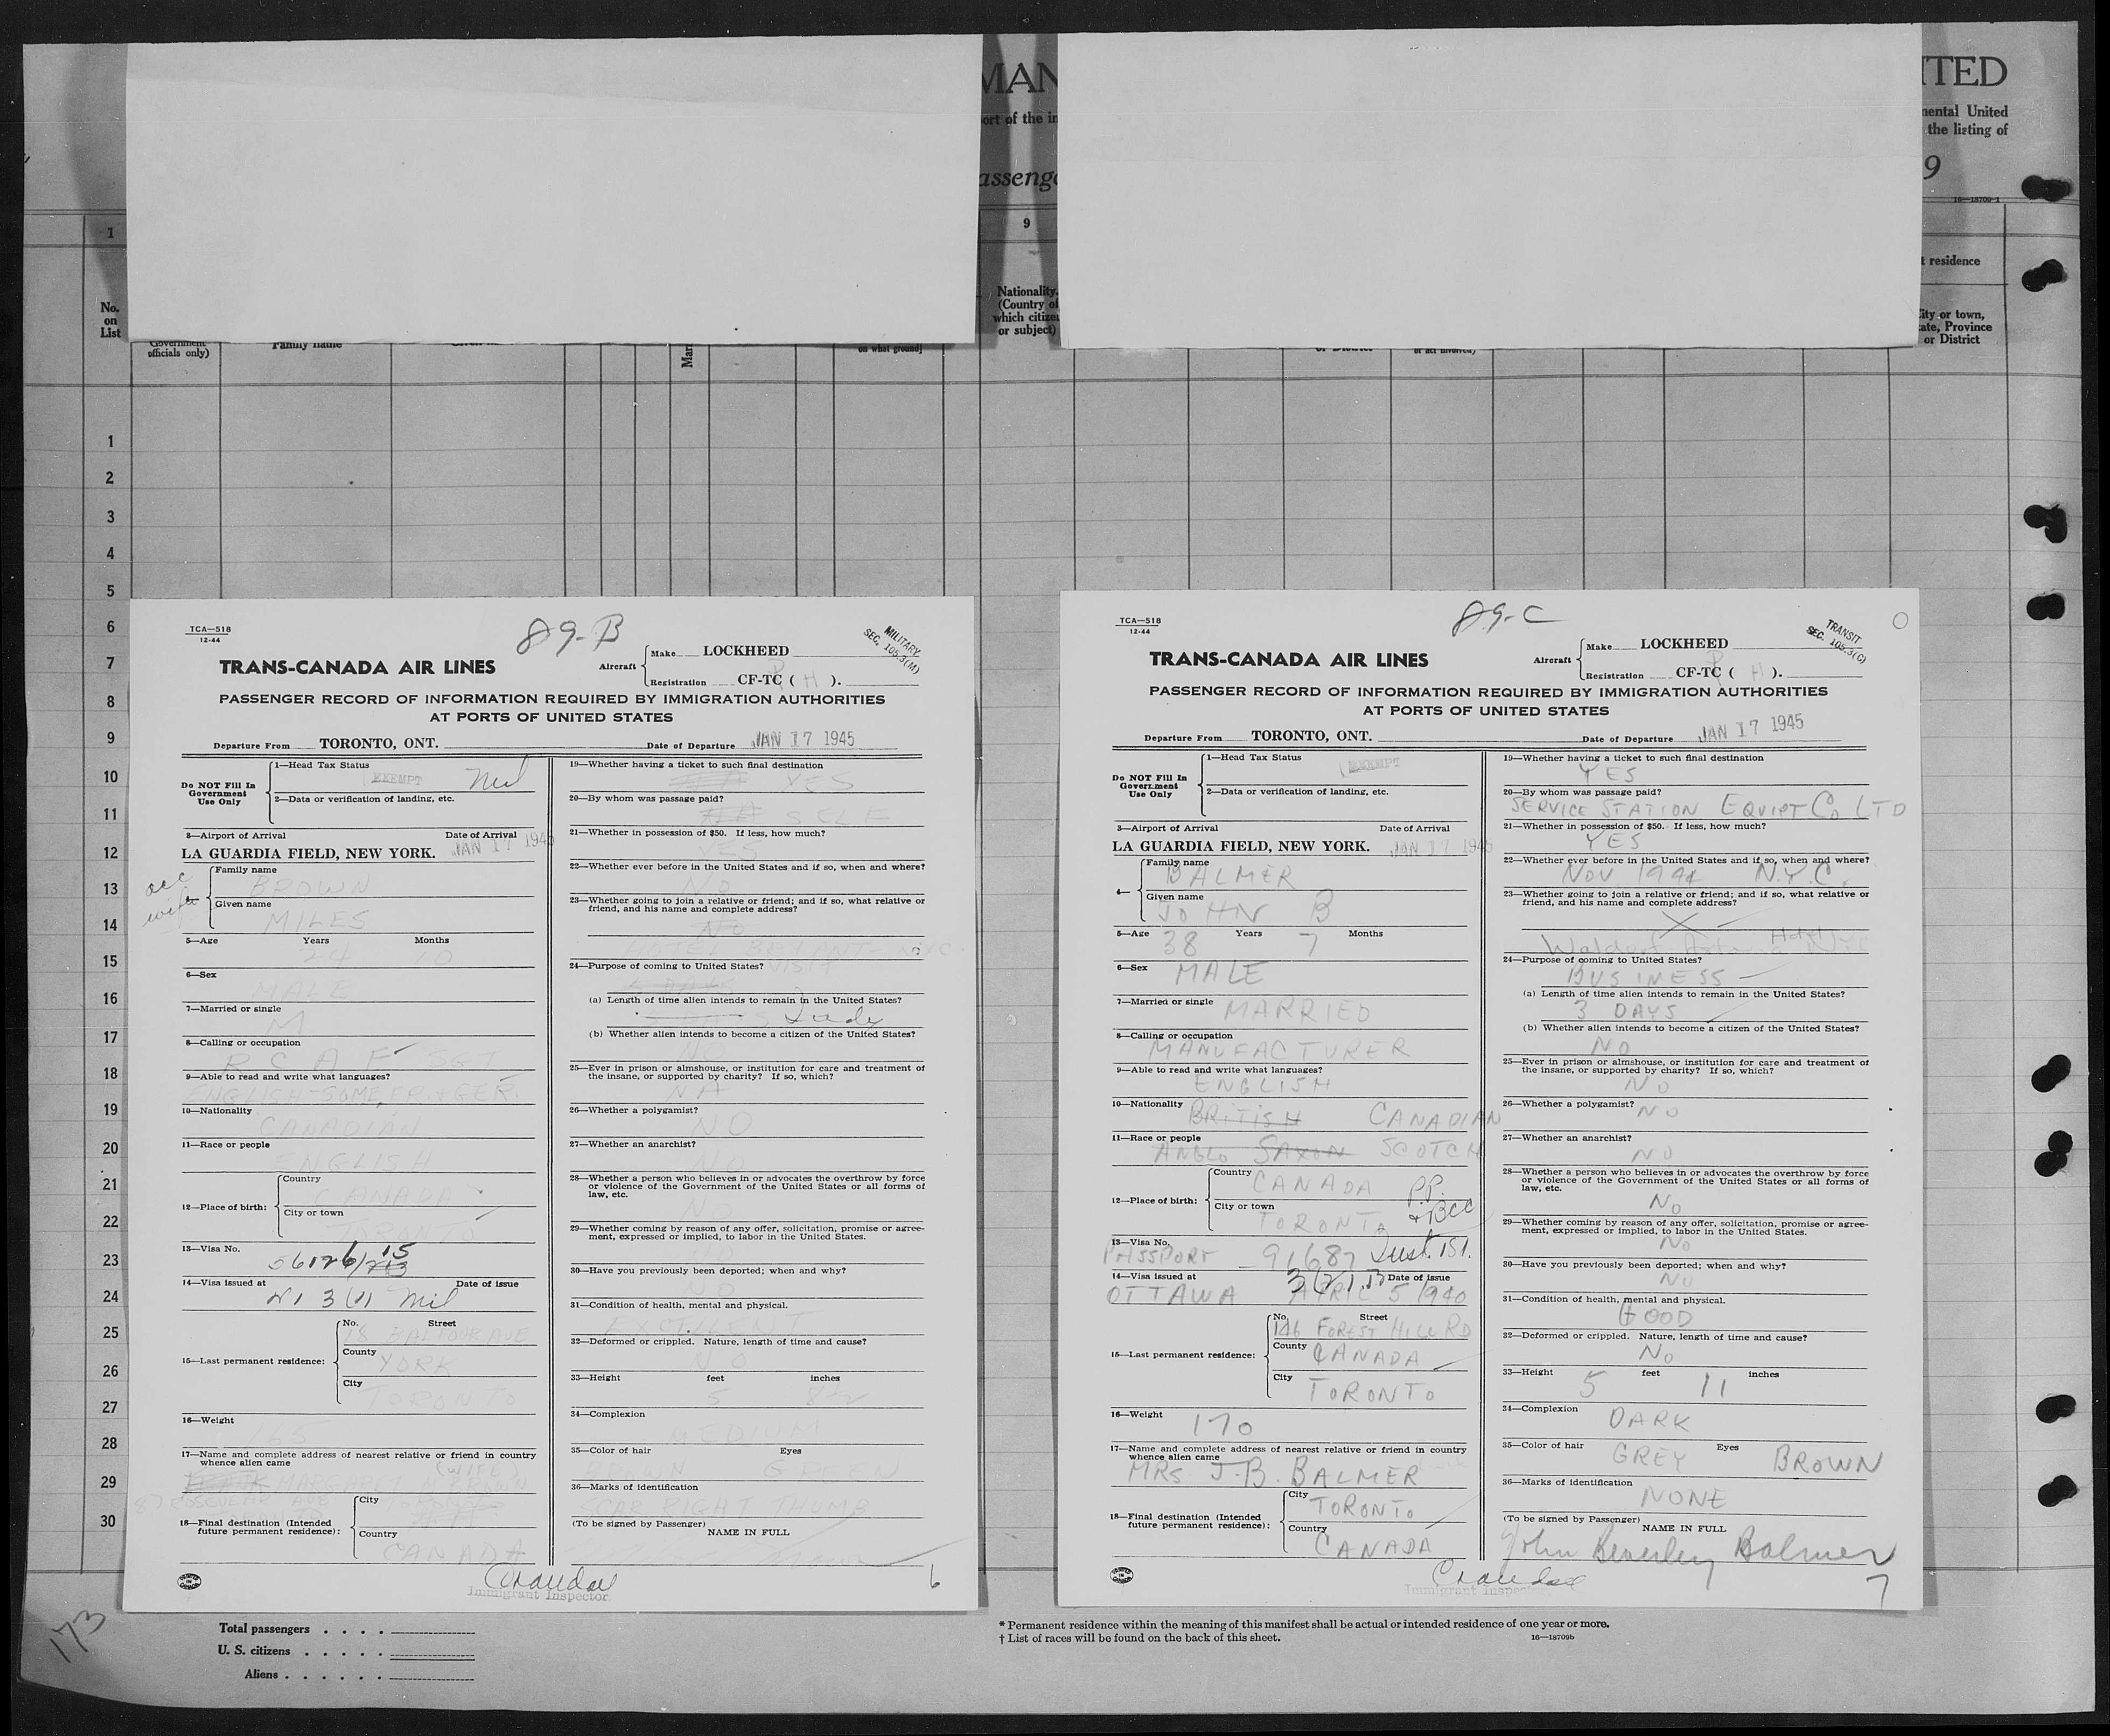 MAN
ITED
ort of the in
nental United
the listing of
assenge
9
16—18709-1
1
9
t residence
No.
on
List
Government
officials only)
Family name
Mar
on what ground)
Nationality.
(Country of
which citizen
or subject)
City or town,
state, Province
or District
1
2
3
4
5
6
7
8
9
10
11
12
13
14
15
16
17
18
19
20
21
22
23
24
25
26
27
28
29
30
TCA—518
12-44
89-B
MILITARY
SEC. 105.3(M)
TRANS-CANADA AIR LINES
Aircraft
Make LOCKHEED
Registration CF-TC ( H ).
PASSENGER RECORD OF INFORMATION REQUIRED BY IMMIGRATION AUTHORITIES
AT PORTS OF UNITED STATES
Departure From TORONTO, ONT. Date of Departure JAN 17 1945
Do NOT Fill In
Government
Use Only
1—Head Tax Status
EXEMPT Mil
2—Data or verification of landing, etc.
3—Airport of Arrival Date of Arrival
LA GUARDIA FIELD, NEW YORK. JAN 17 1945
acc
wife
Family name
BROWN
Given name
MILES
5—Age Years Months
24 10
6—Sex
MALE
7—Married or single
M
8—Calling or occupation
R C A F
9—Able to read and write what languages?
ENGLISH-SOME FR & GER.
10—Nationality
CANADIAN
11—Race or people
ENGLISH
12—Place of birth:
Country
CANADA
City or town
TORONTO
13—Visa No.
14—Visa issued at Date of issue
3(11 Mil
15—Last permanent residence:
No. Street
18 BALFOUR AVE
County
YORK
City
TORONTO
16—Weight
165
17—Name and complete address of nearest relative or friend in country
whence alien came
MARGARET BROWN (WIFE)
18—Final destination (Intended
future permanent residence):
City
Country
CANADA
19—Whether having a ticket to such final destination
YES
20—By whom was passage paid?
SELF
21—Whether in possession of $50. If less, how much?
YES
22—Whether ever before in the United States and if so, when and where?
NO
23—Whether going to join a relative or friend; and if so, what relative or
friend, and his name and complete address?
NO
24—Purpose of coming to United States?
VISIT
(a) Length of time alien intends to remain in the United States?
(b) Whether alien intends to become a citizen of the United States?
NO
25—Ever in prison or almshouse, or institution for care and treatment of
the insane, or supported by charity? If so, which?
26—Whether a polygamist?
NO
27—Whether an anarchist?
NO
28—Whether a person who believes in or advocates the overthrow by force
or violence of the Government of the United States or all forms of
law, etc.
NO
29—Whether coming by reason of any offer, solicitation, promise or agree-
ment, expressed or implied, to labor in the United States.
NO
30—Have you previously been deported; when and why?
NO
31—Condition of health, mental and physical.
EXCELLENT
32—Deformed or crippled. Nature, length of time and cause?
NO
33—Height feet inches
5 8½
34—Complexion
MEDIUM
35—Color of hair Eyes
BROWN GREEN
36—Marks of identification
SCAR RIGHT THUMB
(To be signed by Passenger)
NAME IN FULL
Brown
Crandall
Immigrant Inspector
6
TCA—518
12-44
89-C
TRANSIT
SEC. 105.3(C)
TRANS-CANADA AIR LINES
Aircraft
Make LOCKHEED
Registration CF-TC ( H ).
PASSENGER RECORD OF INFORMATION REQUIRED BY IMMIGRATION AUTHORITIES
AT PORTS OF UNITED STATES
Departure From TORONTO, ONT. Date of Departure JAN 17 1945
Do NOT Fill In
Government
Use Only
1—Head Tax Status
EXEMPT
2—Data or verification of landing, etc.
3—Airport of Arrival Date of Arrival
LA GUARDIA FIELD, NEW YORK. JAN 17 1945
4—
Family name
BALMER
Given name
JOHN B
5—Age 38 Years 7 Months
6—Sex MALE
7—Married or single MARRIED
8—Calling or occupation
MANUFACTURER
9—Able to read and write what languages?
ENGLISH
10—Nationality BRITISH CANADIAN
11—Race or people
ANGLO SAXON SCOTCH
12—Place of birth:
Country
CANADA P.P.
City or town + BCC
TORONTO
13—Visa No.
PASSPORT 91687
14—Visa issued at 3(2) Date of issue
OTTAWA APRIL 5 1940
15—Last permanent residence:
No. Street
146 FOREST HILL RD
County
CANADA
City
TORONTO
16—Weight 170
17—Name and complete address of nearest relative or friend in country
whence alien came
MRS J.B. BALMER
18—Final destination (Intended
future permanent residence):
City
TORONTO
Country
CANADA
19—Whether having a ticket to such final destination
YES
20—By whom was passage paid?
SERVICE STATION EQUIPT CO LTD
21—Whether in possession of $50. If less, how much?
YES
22—Whether ever before in the United States and if so, when and where?
NOV 1944 N.Y.C.
23—Whether going to join a relative or friend; and if so, what relative or
friend, and his name and complete address?
X
Waldorf Astoria Hotel NYC
24—Purpose of coming to United States?
BUSINESS
(a) Length of time alien intends to remain in the United States?
3 DAYS
(b) Whether alien intends to become a citizen of the United States?
NO
25—Ever in prison or almshouse, or institution for care and treatment of
the insane, or supported by charity? If so, which?
NO
26—Whether a polygamist? NO
27—Whether an anarchist?
NO
28—Whether a person who believes in or advocates the overthrow by force
or violence of the Government of the United States or all forms of
law, etc.
NO
29—Whether coming by reason of any offer, solicitation, promise or agree-
ment, expressed or implied, to labor in the United States.
NO
30—Have you previously been deported; when and why?
NO
31—Condition of health, mental and physical.
GOOD
32—Deformed or crippled. Nature, length of time and cause?
NO
33—Height feet inches
5 11
34—Complexion
DARK
35—Color of hair Eyes
GREY BROWN
36—Marks of identification
NONE
(To be signed by Passenger)
NAME IN FULL
John Beverley Balmer
Crandall
Immigrant Inspector
7
173
Total passengers
U. S. citizens
Aliens
* Permanent residence within the meaning of this manifest shall be actual or intended residence of one year or more.
† List of races will be found on the back of this sheet.
16—18709b